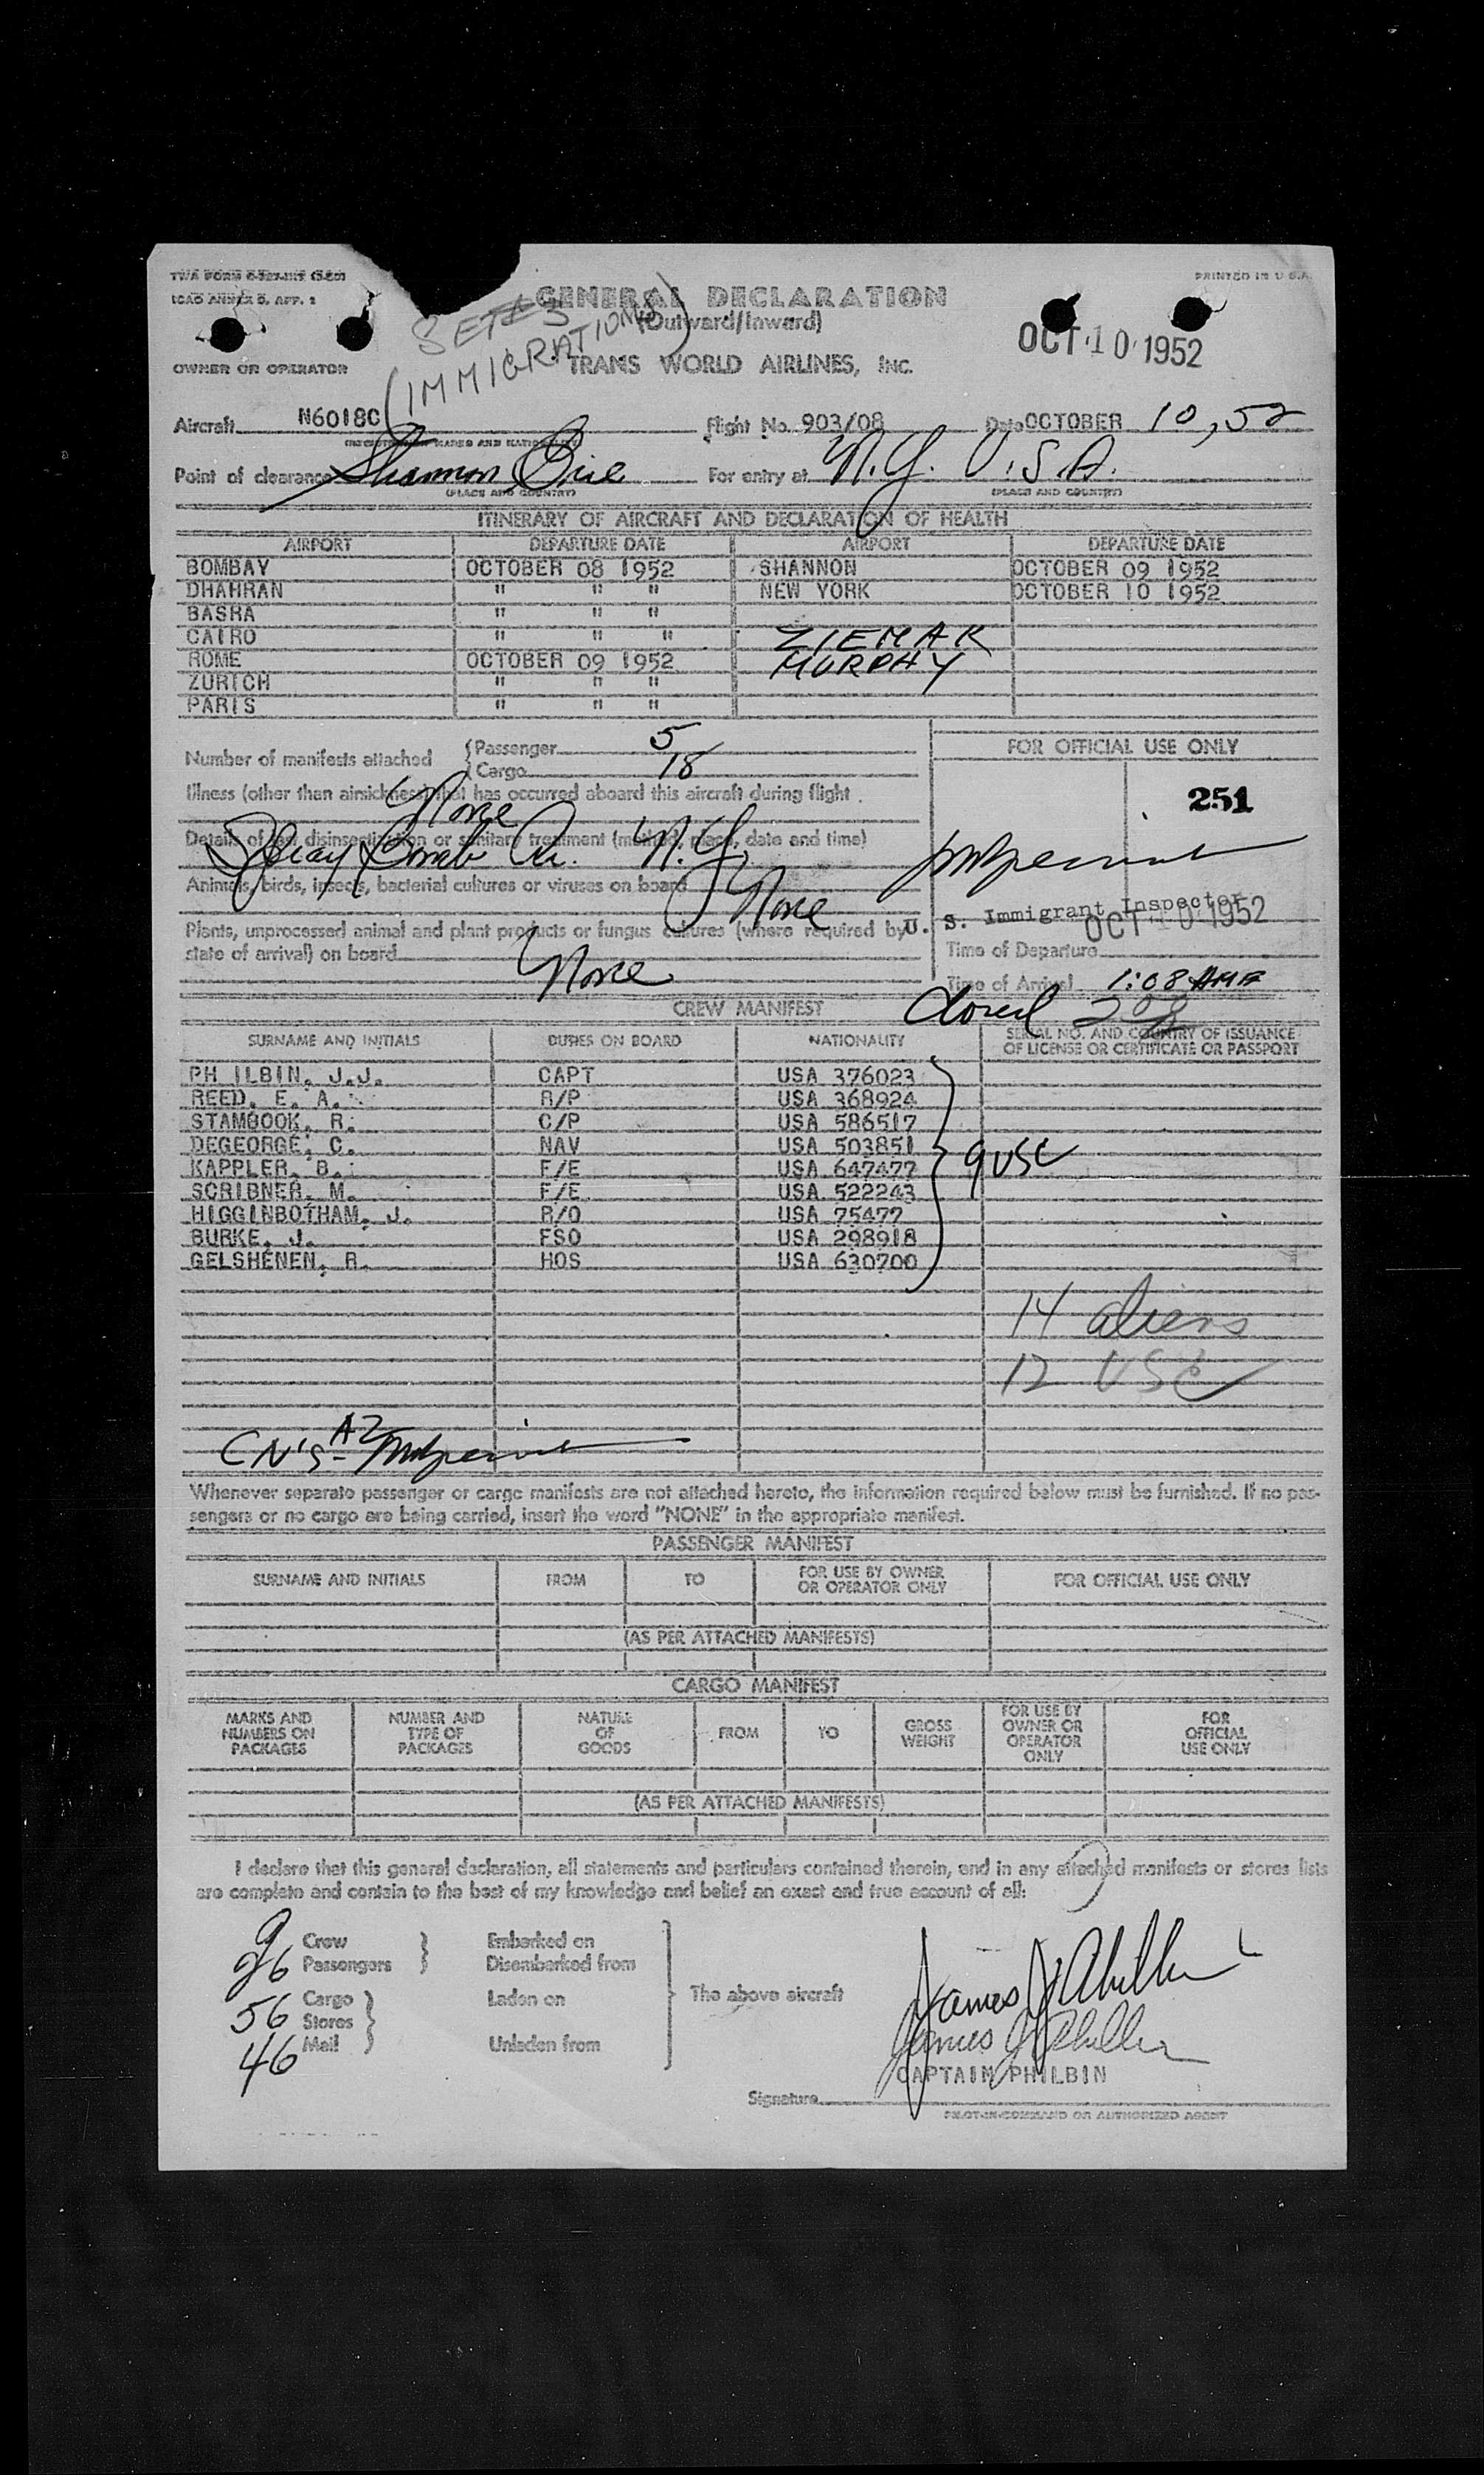 TWA FORM
ICAO ANNEX 9, APP. 1
PRINTED IN U.S.A.
GENERAL DECLARATION
(Outward/Inward)
SET 3
(IMMIGRATIONS)
OCT 10 1952
OWNER OR OPERATOR TRANS WORLD AIRLINES, INC.
Aircraft N6018C Flight No. 903/08 Date OCTOBER 10, 52
Point of clearance Shannon Eire For entry at N.Y. U.S.A.
(PLACE AND COUNTRY) (PLACE AND COUNTRY)
ITINERARY OF AIRCRAFT AND DECLARATION OF HEALTH
AIRPORT DEPARTURE DATE AIRPORT DEPARTURE DATE
BOMBAY OCTOBER 08 1952 SHANNON OCTOBER 09 1952
DHAHRAN " " " NEW YORK OCTOBER 10 1952
BASRA " " "
CAIRO " " " ZIEMAK
ROME OCTOBER 09 1952 MURPHY
ZURICH " " "
PARIS " " "
Number of manifests attached { Passenger 5
Cargo 18
FOR OFFICIAL USE ONLY
251
Illness (other than airsickness) that has occurred aboard this aircraft during flight.
None
Details of last disinsectization or sanitary treatment (method, place, date and time)
N.Y.
Animals, birds, insects, bacterial cultures or viruses on board
None
Plants, unprocessed animal and plant products or fungus cultures (where required by
state of arrival) on board
None
U. S. Immigrant Inspector
OCT 10 1952
Time of Departure
Time of Arrival 1:08 AME
Closed
CREW MANIFEST
SURNAME AND INITIALS DUTIES ON BOARD NATIONALITY SERIAL NO. AND COUNTRY OF ISSUANCE OF LICENSE OR CERTIFICATE OR PASSPORT
PH ILBIN, J.J. CAPT USA 376023
REED, E. A. R/P USA 368924
STAMBOOK, R. C/P USA 586517
DEGEORGE, C. NAV USA 503851
KAPPLER, B. F/E USA 647477 9 USC
SCRIBNER, M. F/E USA 522243
HIGGINBOTHAM, J. R/O USA 75477
BURKE, J. FSO USA 298918
GELSHENEN, R. HOS USA 630700
14 aliens
12 USC
CN'S - A2
Whenever separate passenger or cargo manifests are not attached hereto, the information required below must be furnished. If no pas-
sengers or no cargo are being carried, insert the word "NONE" in the appropriate manifest.
PASSENGER MANIFEST
SURNAME AND INITIALS FROM TO FOR USE BY OWNER OR OPERATOR ONLY FOR OFFICIAL USE ONLY
(AS PER ATTACHED MANIFESTS)
CARGO MANIFEST
MARKS AND NUMBERS ON PACKAGES NUMBER AND TYPE OF PACKAGES NATURE OF GOODS FROM TO GROSS WEIGHT FOR USE BY OWNER OR OPERATOR ONLY FOR OFFICIAL USE ONLY
(AS PER ATTACHED MANIFESTS)
I declare that this general declaration, all statements and particulars contained therein, and in any attached manifests or stores lists
are complete and contain to the best of my knowledge and belief an exact and true account of all:
9 Crew Embarked on
26 Passengers Disembarked from
56 Cargo Laden on The above aircraft
Stores
46 Mail Unladen from
James J Philbin
James J Philbin
CAPTAIN PHILBIN
Signature
PILOT-IN-COMMAND OR AUTHORIZED AGENT